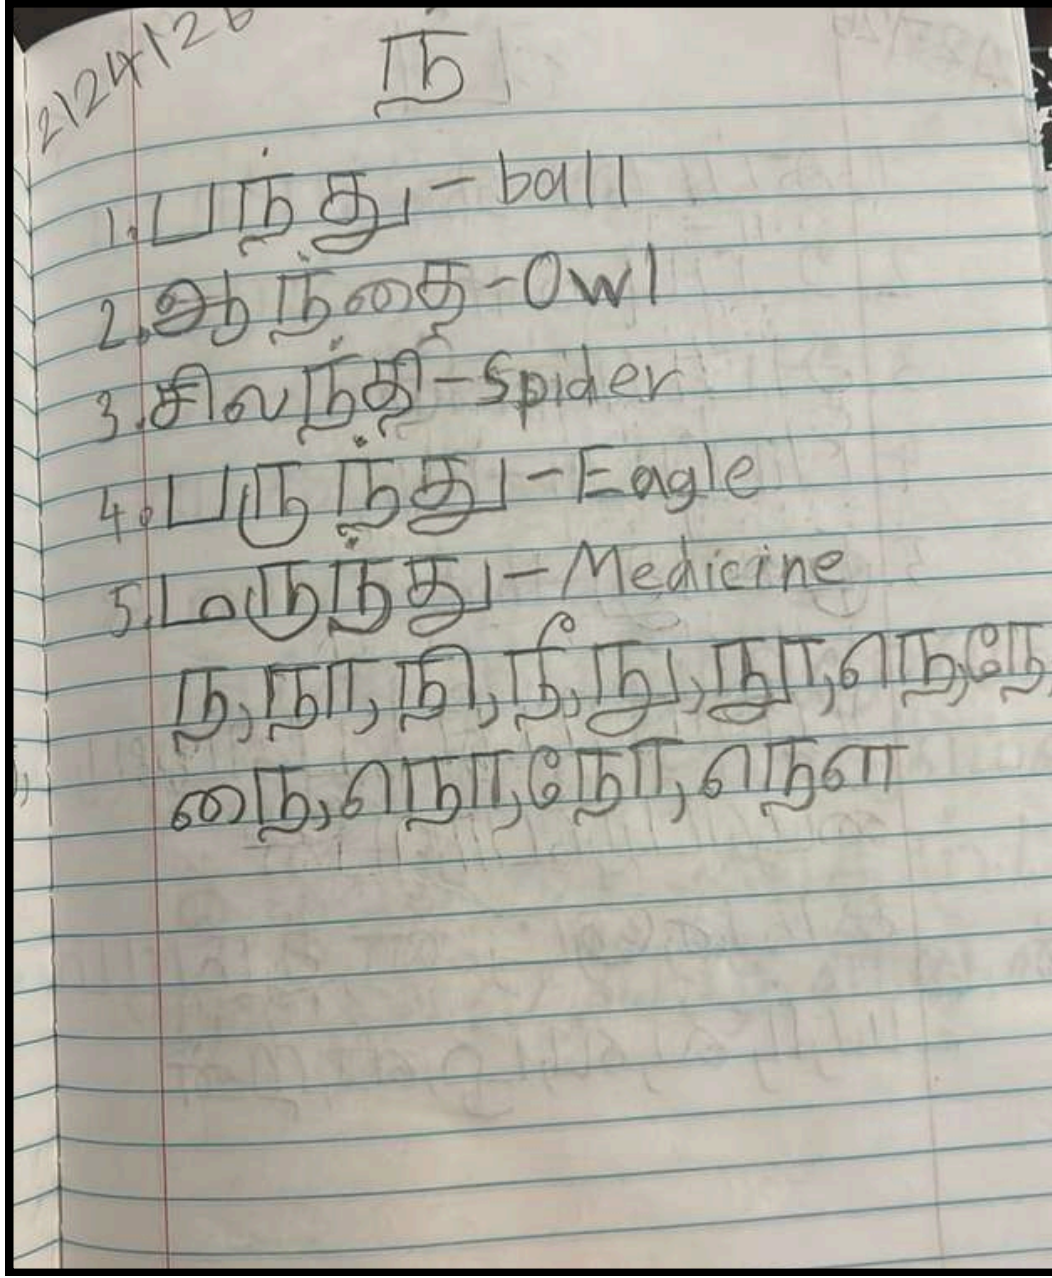 2124126
ந
1. பந்து - ball
2. ஆந்தை - Owl
3. சிலந்தி - Spider
4. பருந்து - Eagle
5. மருந்து - Medicine
ந, நா, நி, நீ, நு, நூ, நெ, நே,
நை, நொ, நோ, நௌ